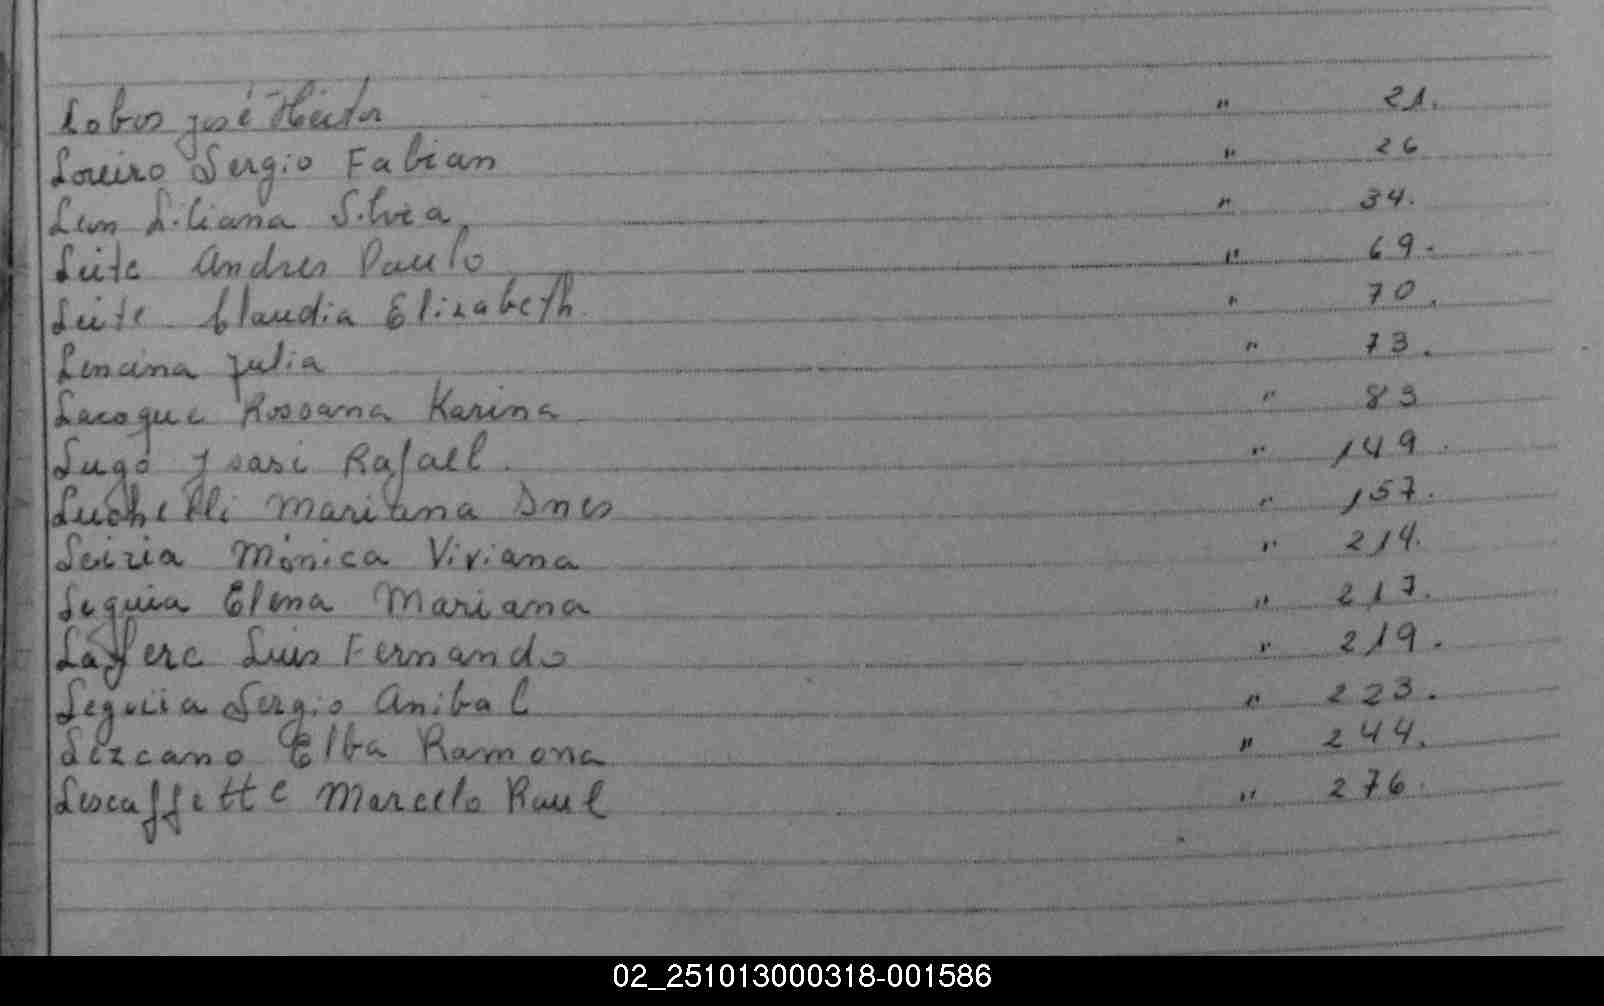 Lobos José Héctor " 21.
Loueiro Sergio Fabian " 26
Leun Liliana Silvia " 34.
Leite Andres Paulo " 69.
Leite Claudia Elizabeth. " 70.
Lencina Julia " 73.
Lacoque Rossana Karina " 83
Lugo Ysasi Rafael. " 149.
Luchelli Mariana Ines " 157.
Leiria Mónica Viviana " 214.
Leguia Elena Mariana " 217.
Luis Fernando " 219.
Leguia Sergio Anibal " 223.
Lezcano Elba Ramona " 244.
Lescaffette Marcelo Raul " 276.
02_251013000318-001586